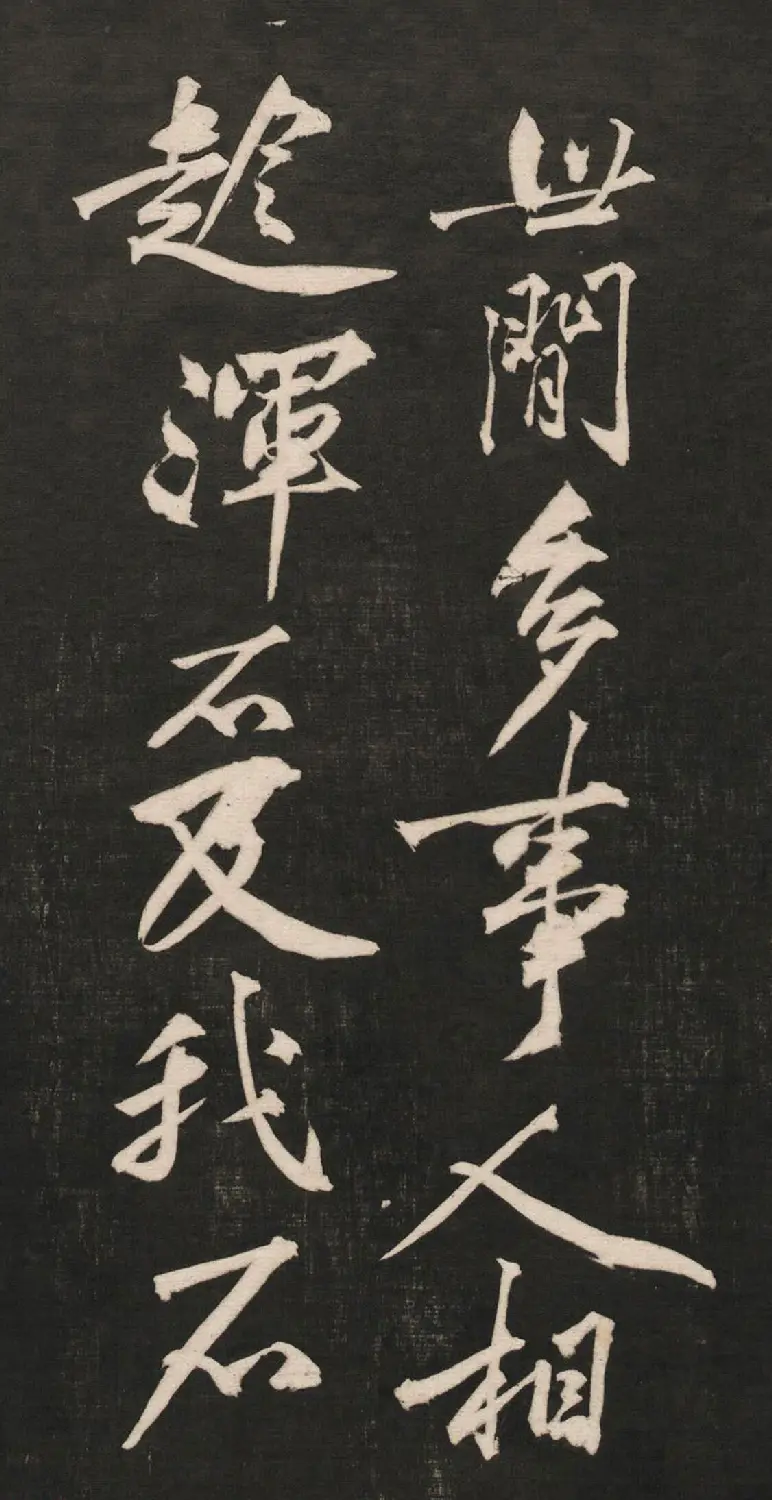 世閒多事人相
趁渾不及我不